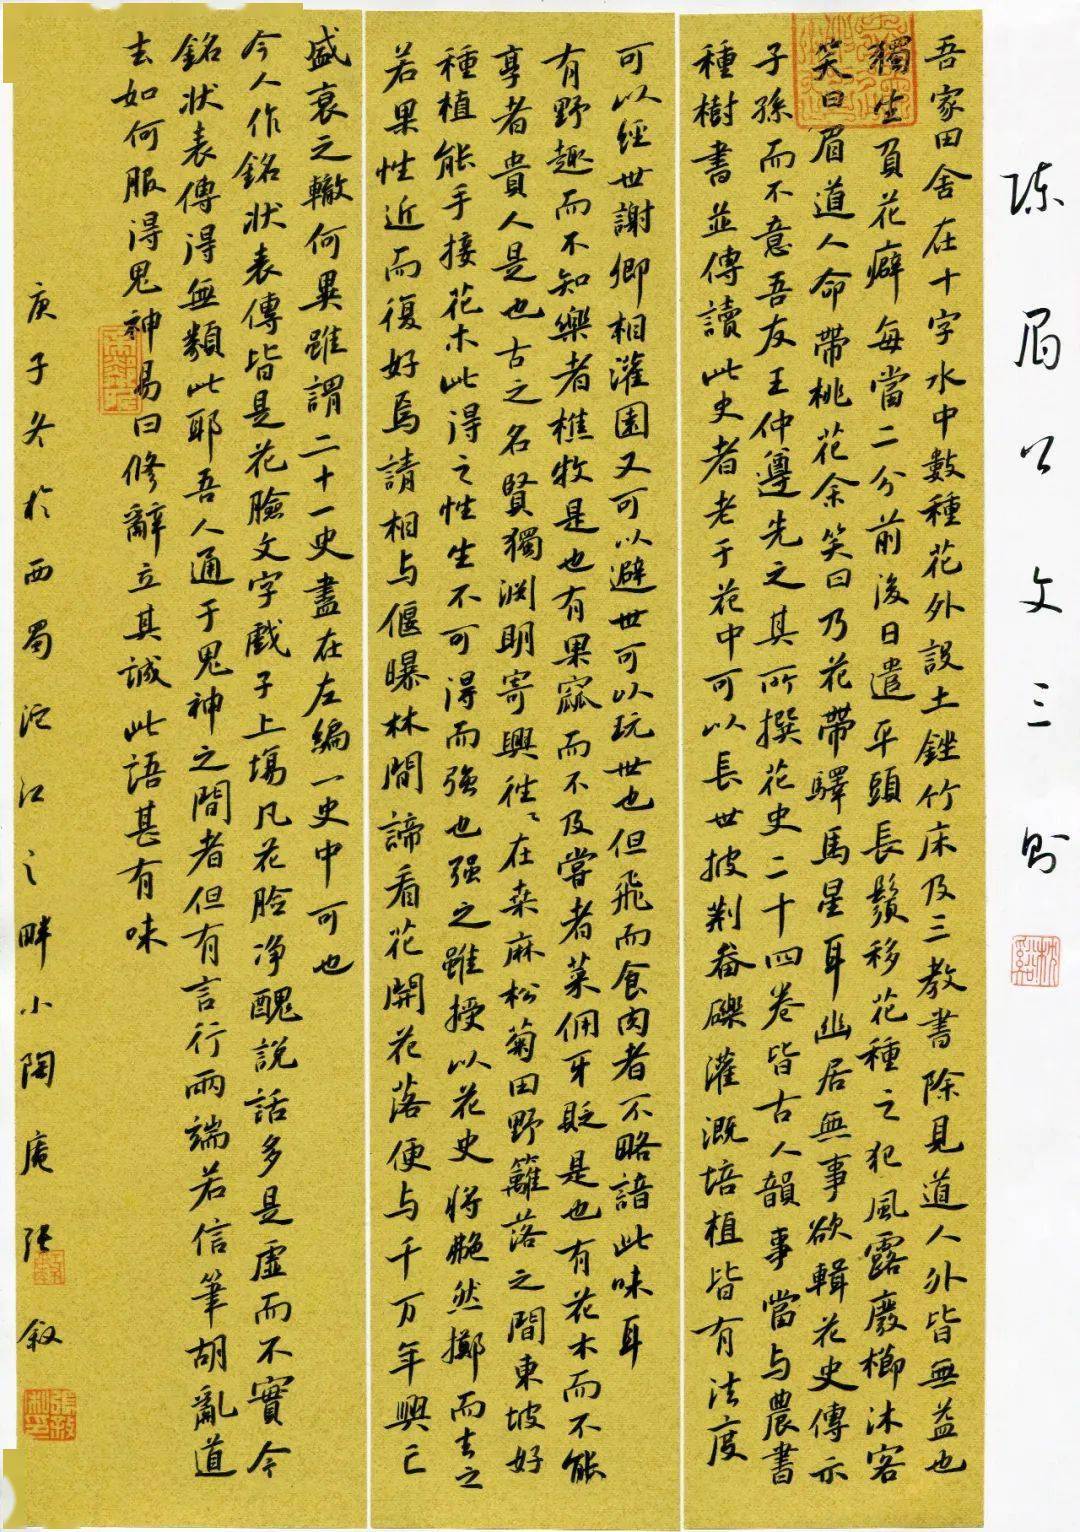 陈眉公文三则
吾家田舍在十字水中數種花外設土銼竹床及三教書除見道人外皆無益也
獨生負花癖每當二分前後日遣平頭長鬚移花種之犯風露廢櫛沐客
笑曰眉道人命帶桃花余笑曰乃花帶驛馬星耳幽居無事欲輯花史傳示
子孫而不意吾友王仲遵先之其所撰花史二十四卷皆古人韻事當与農書
種樹書並傳讀此史者老于花中可以長世披荆畚礫灌溉培植皆有法度
可以經世謝卿相灌園又可以避世可以玩世也但飛而食肉者不略諳此味耳
有野趣而不知樂者樵牧是也有果窳而不及嘗者菜佣牙販是也有花木而不能
享者貴人是也古之名賢獨渊明寄興往々在桑麻松菊田野籬落之間東坡好
種植能手接花木此得之性生不可得而強也强之雖授以花史將艴然擲而去之
若果性近而復好焉請相与偃曝林間諦看花開花落便与千万年興亡
盛衰之轍何異雖謂二十一史盡在左編一史中可也
今人作銘状表傳皆是花臉文字戲子上場凡花脸净醜說話多是虛而不實今
銘状表傳得無類此耶吾人通于鬼神之間者但有言行兩端若信筆胡亂道
去如何服得鬼神易曰修辭立其誠此語甚有味
庚子冬於西蜀沱江之畔小陶庵张叙